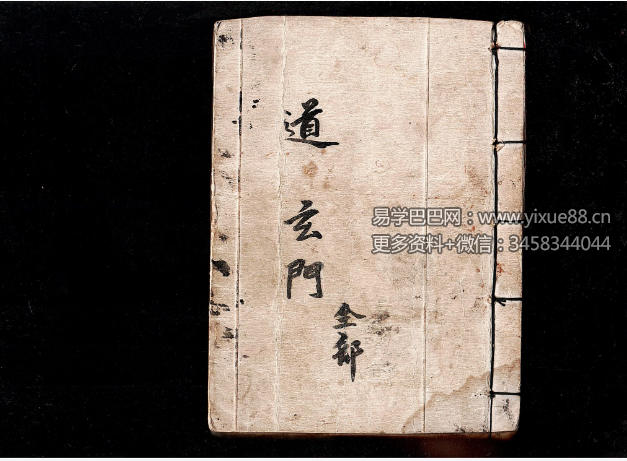 道玄門
全部
易学巴巴网：www.yixue88.cn
更多资料+微信：3458344044